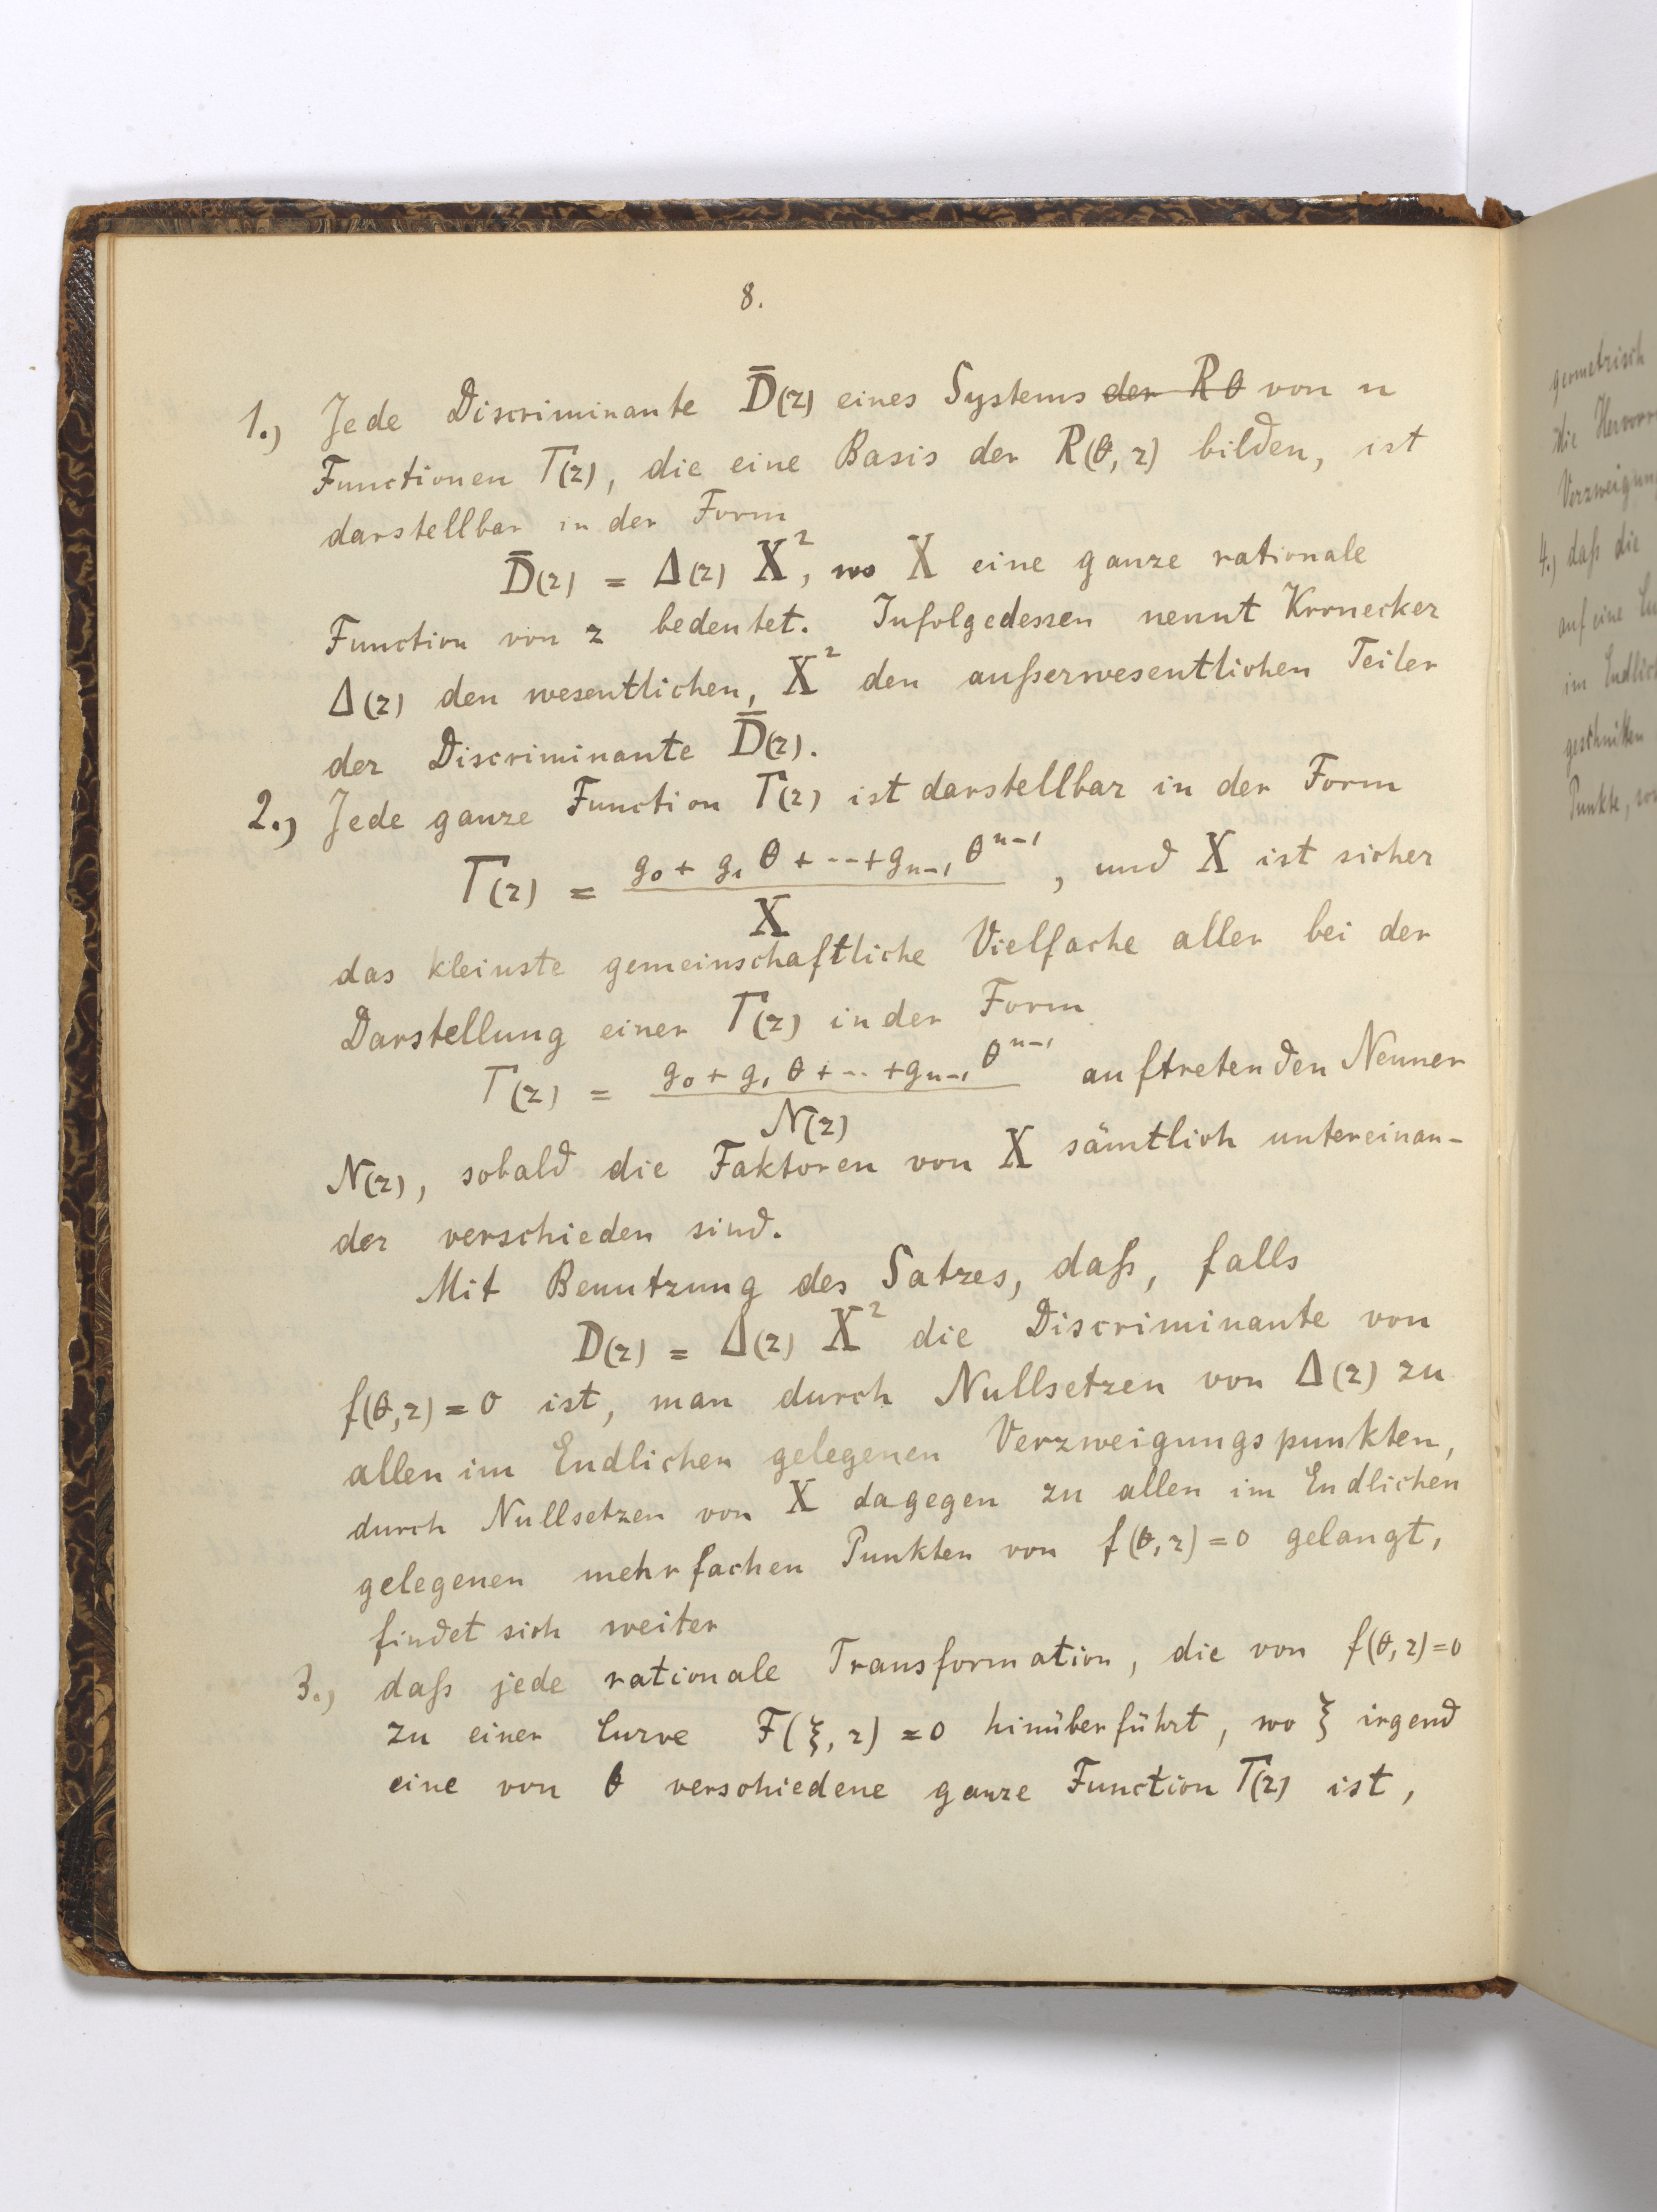 8.
1.) Jede Discriminante D̄(z) eines Systems der R θ von n
Functionen T(z), die eine Basis der R(θ, z) bilden, ist
darstellbar in der Form
D̄(z) = Δ(z) X², wo X eine ganze rationale
Function von z bedeutet. Infolgedessen nennt Kronecker
Δ(z) den wesentlichen, X² den außerwesentlichen Teiler
der Discriminante D̄(z).
2.) Jede ganze Function T(z) ist darstellbar in der Form
T(z) = (g₀ + g₁ θ + ··· + gₙ₋₁ θⁿ⁻¹) / X , und X ist sicher
das kleinste gemeinschaftliche Vielfache aller bei der
Darstellung einer T(z) in der Form
T(z) = (g₀ + g₁ θ + ··· + gₙ₋₁ θⁿ⁻¹) / N(z) auftretenden Nenner
N(z), sobald die Faktoren von X sämtlich untereinan-
der verschieden sind.
Mit Benutzung des Satzes, daß, falls
D(z) = Δ(z) X² die Discriminante von
f(θ, z) = 0 ist, man durch Nullsetzen von Δ(z) zu
allen im Endlichen gelegenen Verzweigungspunkten,
durch Nullsetzen von X dagegen zu allen im Endlichen
gelegenen mehrfachen Punkten von f(θ, z) = 0 gelangt,
findet sich weiter
3.) daß jede rationale Transformation, die von f(θ, z) = 0
zu einer Curve F(ξ, z) = 0 hinüberführt, wo ξ irgend
eine von θ verschiedene ganze Function T(z) ist,
geometrisch
die
4.) daß die
auf eine
im
geschnitten
Punkte,